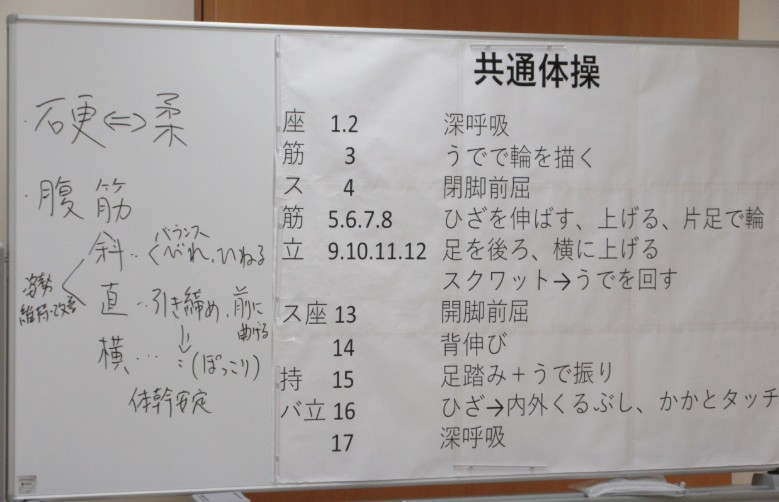 ・硬⇔柔
・腹筋
バランス
斜‥くびれ、ひねる
姿勢
維持・改善
直‥引き締め、前に
曲げる
↓
横…：(ぽっこり)
体幹安定
共通体操
座 1.2 深呼吸
筋 3 うでで輪を描く
ス 4 閉脚前屈
筋 5.6.7.8 ひざを伸ばす、上げる、片足で輪
立 9.10.11.12 足を後ろ、横に上げる
スクワット→うでを回す
ス座 13 開脚前屈
14 背伸び
持 15 足踏み＋うで振り
バ立 16 ひざ→内外くるぶし、かかとタッチ
17 深呼吸